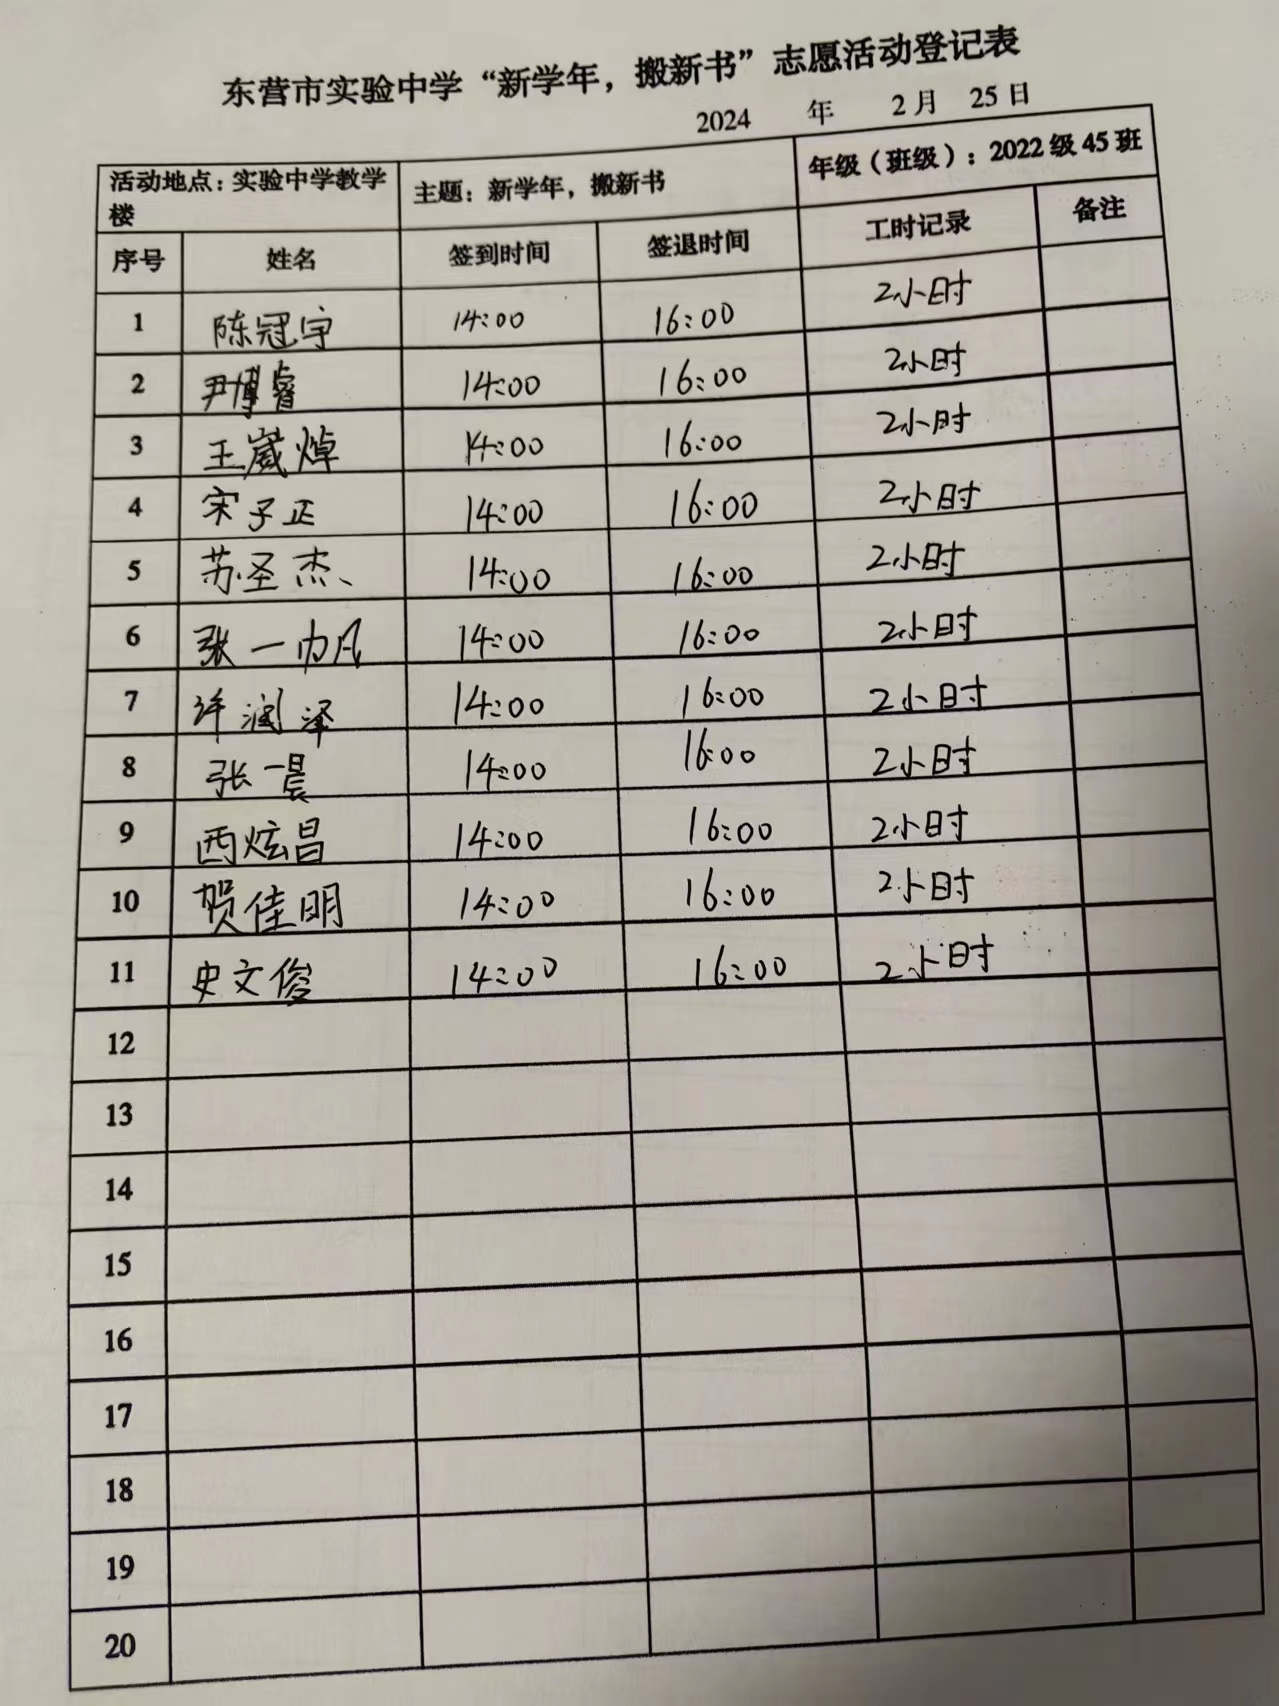 东营市实验中学“新学年，搬新书”志愿活动登记表
2024 年 2月 25日
活动地点：实验中学教学楼 主题：新学年，搬新书 年级（班级）：2022级45班
序号 姓名 签到时间 签退时间 工时记录 备注
1 陈冠宇 14:00 16:00 2小时
2 尹博睿 14:00 16:00 2小时
3 王崴焯 14:00 16:00 2小时
4 宋子正 14:00 16:00 2小时
5 苏圣杰 14:00 16:00 2小时
6 张一帆 14:00 16:00 2小时
7 许润泽 14:00 16:00 2小时
8 张一晨 14:00 16:00 2小时
9 西炫昌 14:00 16:00 2小时
10 贺佳明 14:00 16:00 2小时
11 史文俊 14:00 16:00 2小时
12
13
14
15
16
17
18
19
20